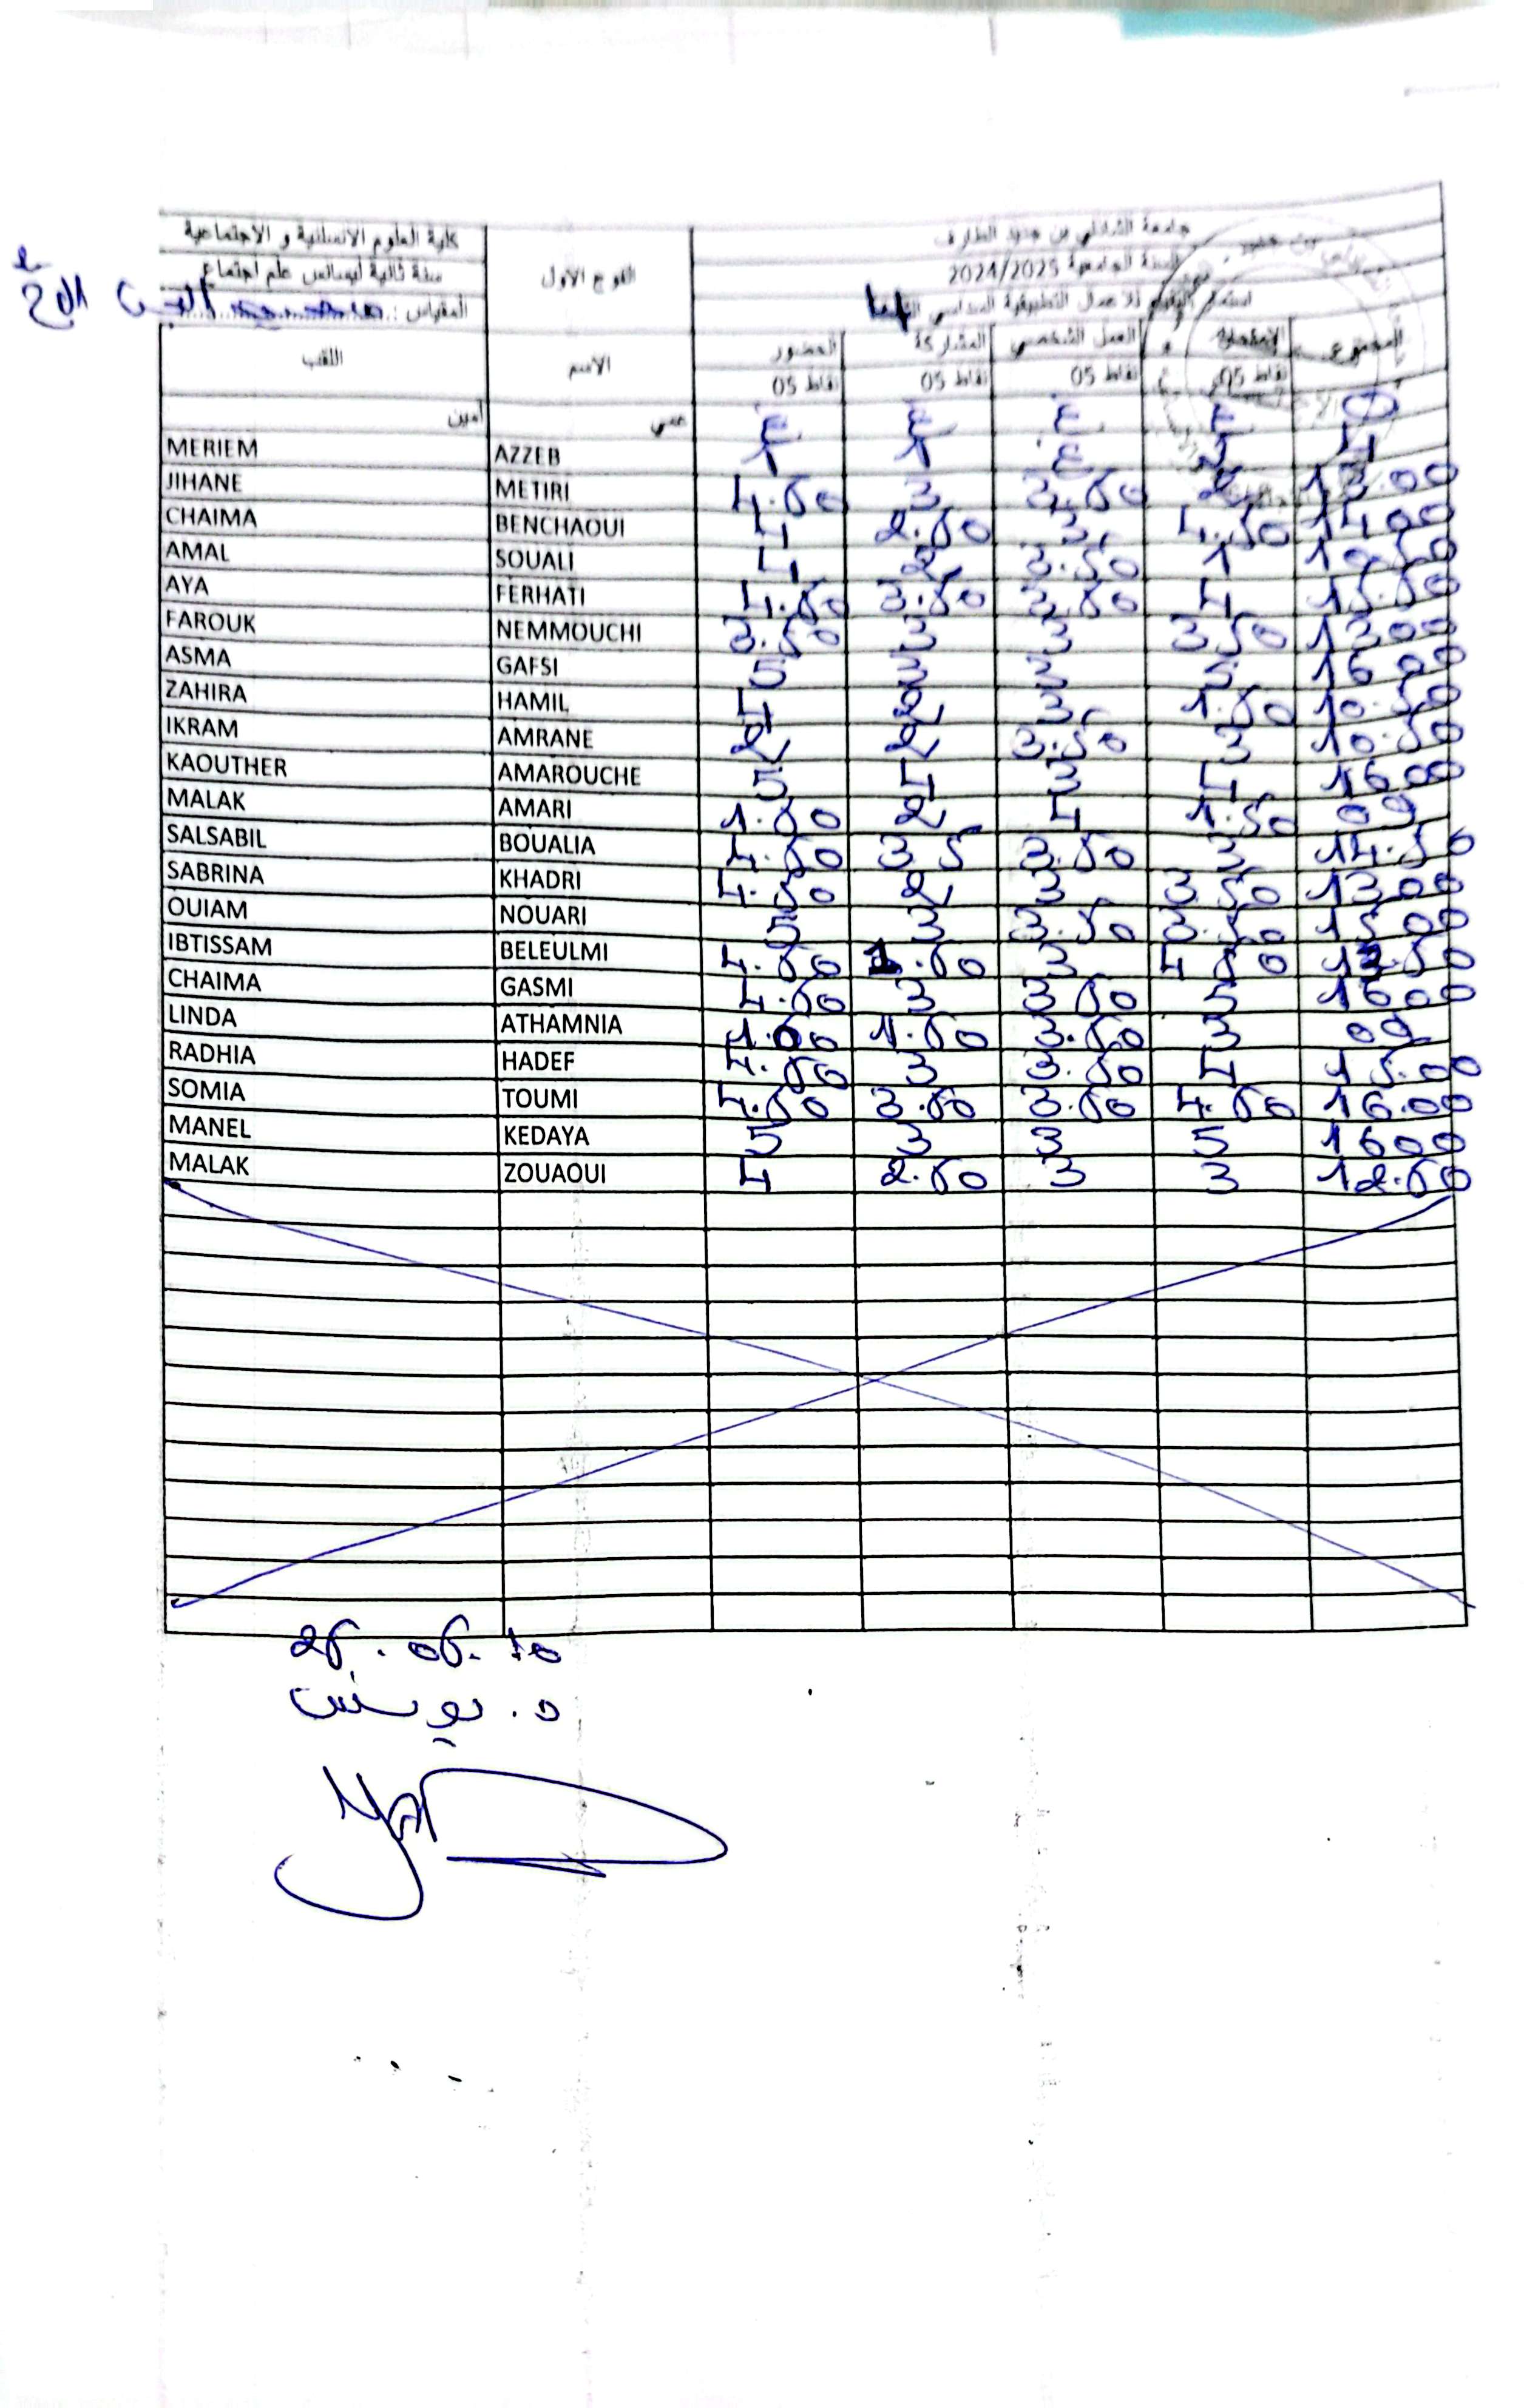 جامعة الشاذلي بن جديد الطارف
كلية العلوم الانسانية و الاجتماعية
الفوج الاول
السنة الجامعية 2024/2025
سنة ثانية ليسانس علم اجتماع
للاعمال التطبيقية السداسي
المقياس :
اللقب الاسم الحضور المشاركة العمل الشخصي المجموع
05 نقاط 05 نقاط 05 نقاط 05 نقاط
أمين عمي E E E E 0
MERIEM AZZEB 1 1 E 2 4
JIHANE METIRI 4.50 3 3.50 2 13.00
CHAIMA BENCHAOUI 4 2.50 3 4.50 14.00
AMAL SOUALI 4 2 3.50 1 10.50
AYA FERHATI 4.50 3.50 3.50 4 15.50
FAROUK NEMMOUCHI 3.50 3 3 3.50 13.00
ASMA GAFSI 5 3 3 5 16.00
ZAHIRA HAMIL 4 2 3 1.50 10.50
IKRAM AMRANE 2 2 3.50 3 10.50
KAOUTHER AMAROUCHE 5 4 3 4 16.00
MALAK AMARI 1.50 2 4 1.50 09
SALSABIL BOUALIA 4.50 3 5 3.50 3 14.50
SABRINA KHADRI 4.50 2 3 3.50 13.00
OUIAM NOUARI 5 3 3.50 3.50 15.00
IBTISSAM BELEULMI 4.50 1.50 3 4 50 13.50
CHAIMA GASMI 4.50 3 3 50 5 16 00
LINDA ATHAMNIA 1.00 1.50 3.50 3 09
RADHIA HADEF 4.50 3 3.50 4 15.00
SOMIA TOUMI 4.50 3.50 3.50 4.50 16.00
MANEL KEDAYA 5 3 3 5 1600
MALAK ZOUAOUI 4 2.50 3 3 12.50
د. يونس